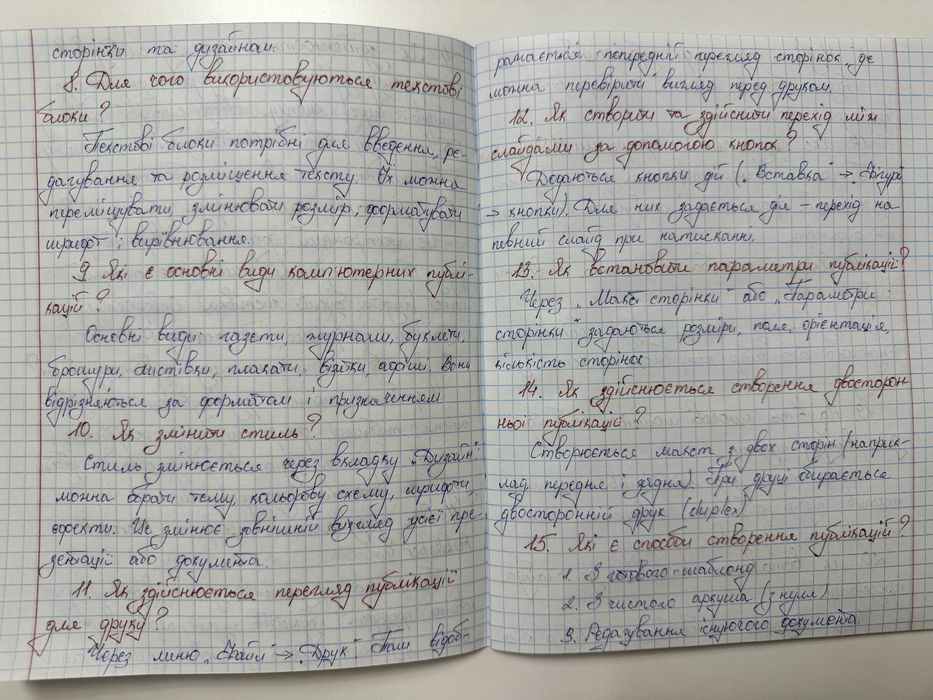 сторінки та дизайном.
8. Для чого використовуються текстові
блоки?
Текстові блоки потрібні для введення, ре-
дагування та розміщення тексту. Їх можна
переміщувати, змінювати розмір, форматувати
шрифт і вирівнювання.
9. Які є основні види комп'ютерних публі-
кацій?
Основні види: газети, журнали, буклети,
брошури, листівки, плакати, візитки, афіші. Вони
відрізняються за форматом і призначенням
10. Як змінити стиль?
Стиль змінюється через вкладку „Дизайн":
можна обрати тему, кольорову схему, шрифти,
ефекти. Це змінює зовнішній вигляд усієї пре-
зентації або документа.
11. Як здійснюється перегляд публікацій
для друку?
Через меню „Файл" → „Друк". Там відоб-
ражається попередній перегляд сторінок, де
можна перевірити вигляд перед друком.
12. Як створити та здійснити перехід між
слайдами за допомогою кнопок?
Додаються кнопки дій („Вставка" → „Фігури"
→ кнопки). Для них задається дія – перехід на
певний слайд при натисканні.
13. Як встановити параметри публікації?
Через „Макет сторінки" або „Параметри
сторінки" задаються розміри, поля, орієнтація,
кількість сторінок
14. Як здійснюється створення двосторон-
ньої публікацій?
Створюється макет з двох сторін (наприк-
лад, передня і задня). При друці обирається
двосторонній друк (duplex)
15. Які є способи створення публікацій?
1. З готового шаблону
2. З чистого аркуша (з нуля)
3. Редагування існуючого документа.